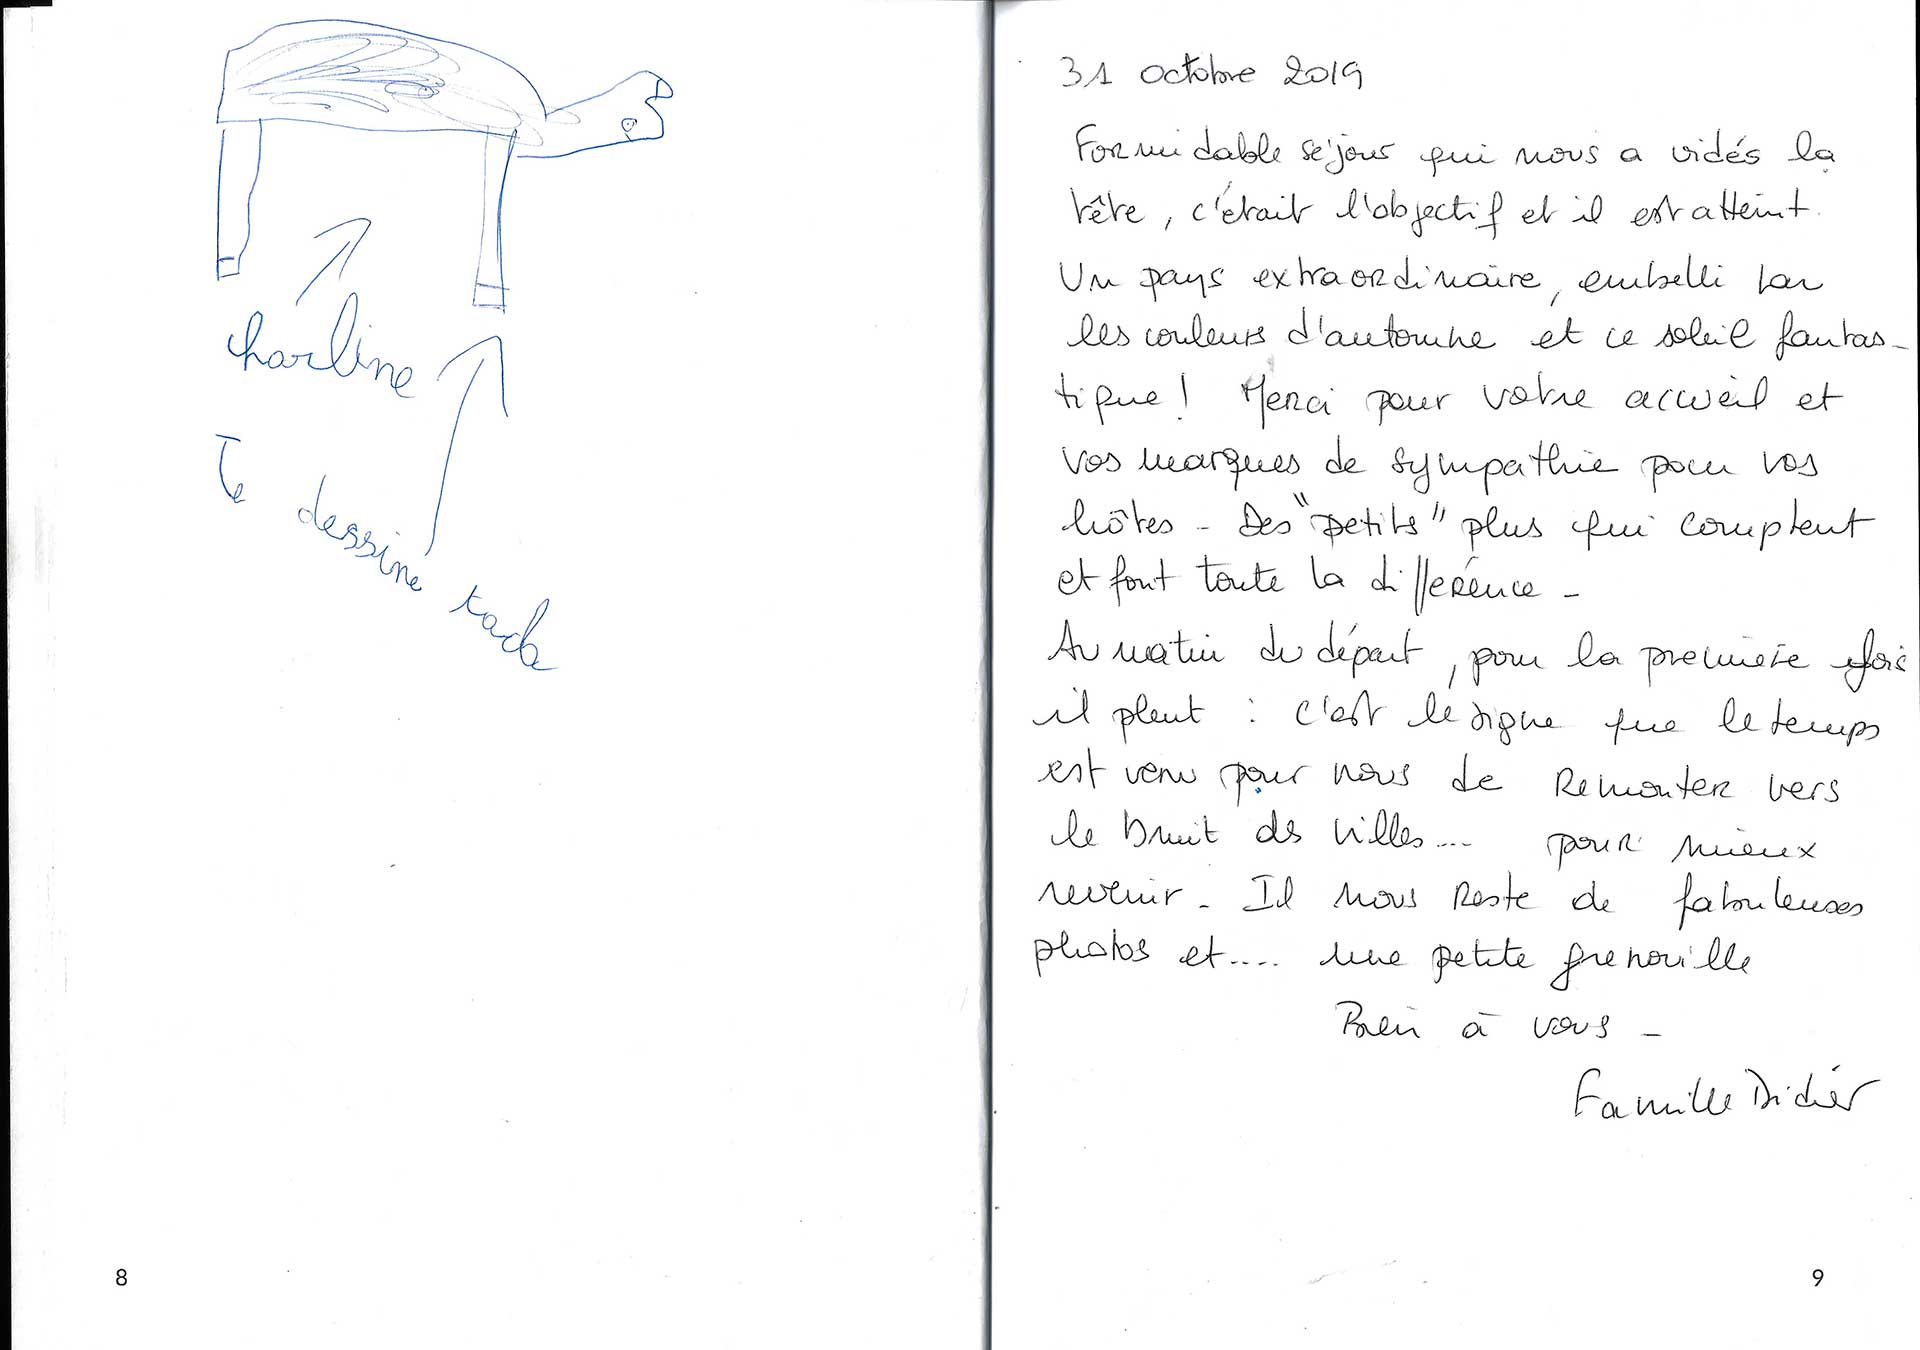 charline
Te dessine
8
31 octobre 2019
Formidable séjour qui nous a vidés la
tête, c'était l'objectif et il est atteint.
Un pays extraordinaire, embelli par
les couleurs d'automne et ce soleil fantas-
tique! Merci pour votre accueil et
vos marques de sympathie pour vos
hôtes - Des "petits" plus qui comptent
et font toute la différence -
Au matin du départ, pour la première fois
il pleut : c'est le signe que le temps
est venu pour nous de remonter vers
le bruit des villes.... pour mieux
revenir - Il nous reste de fabuleuses
photos et .... une petite grenouille
Bien à vous -
Famille Didier
9